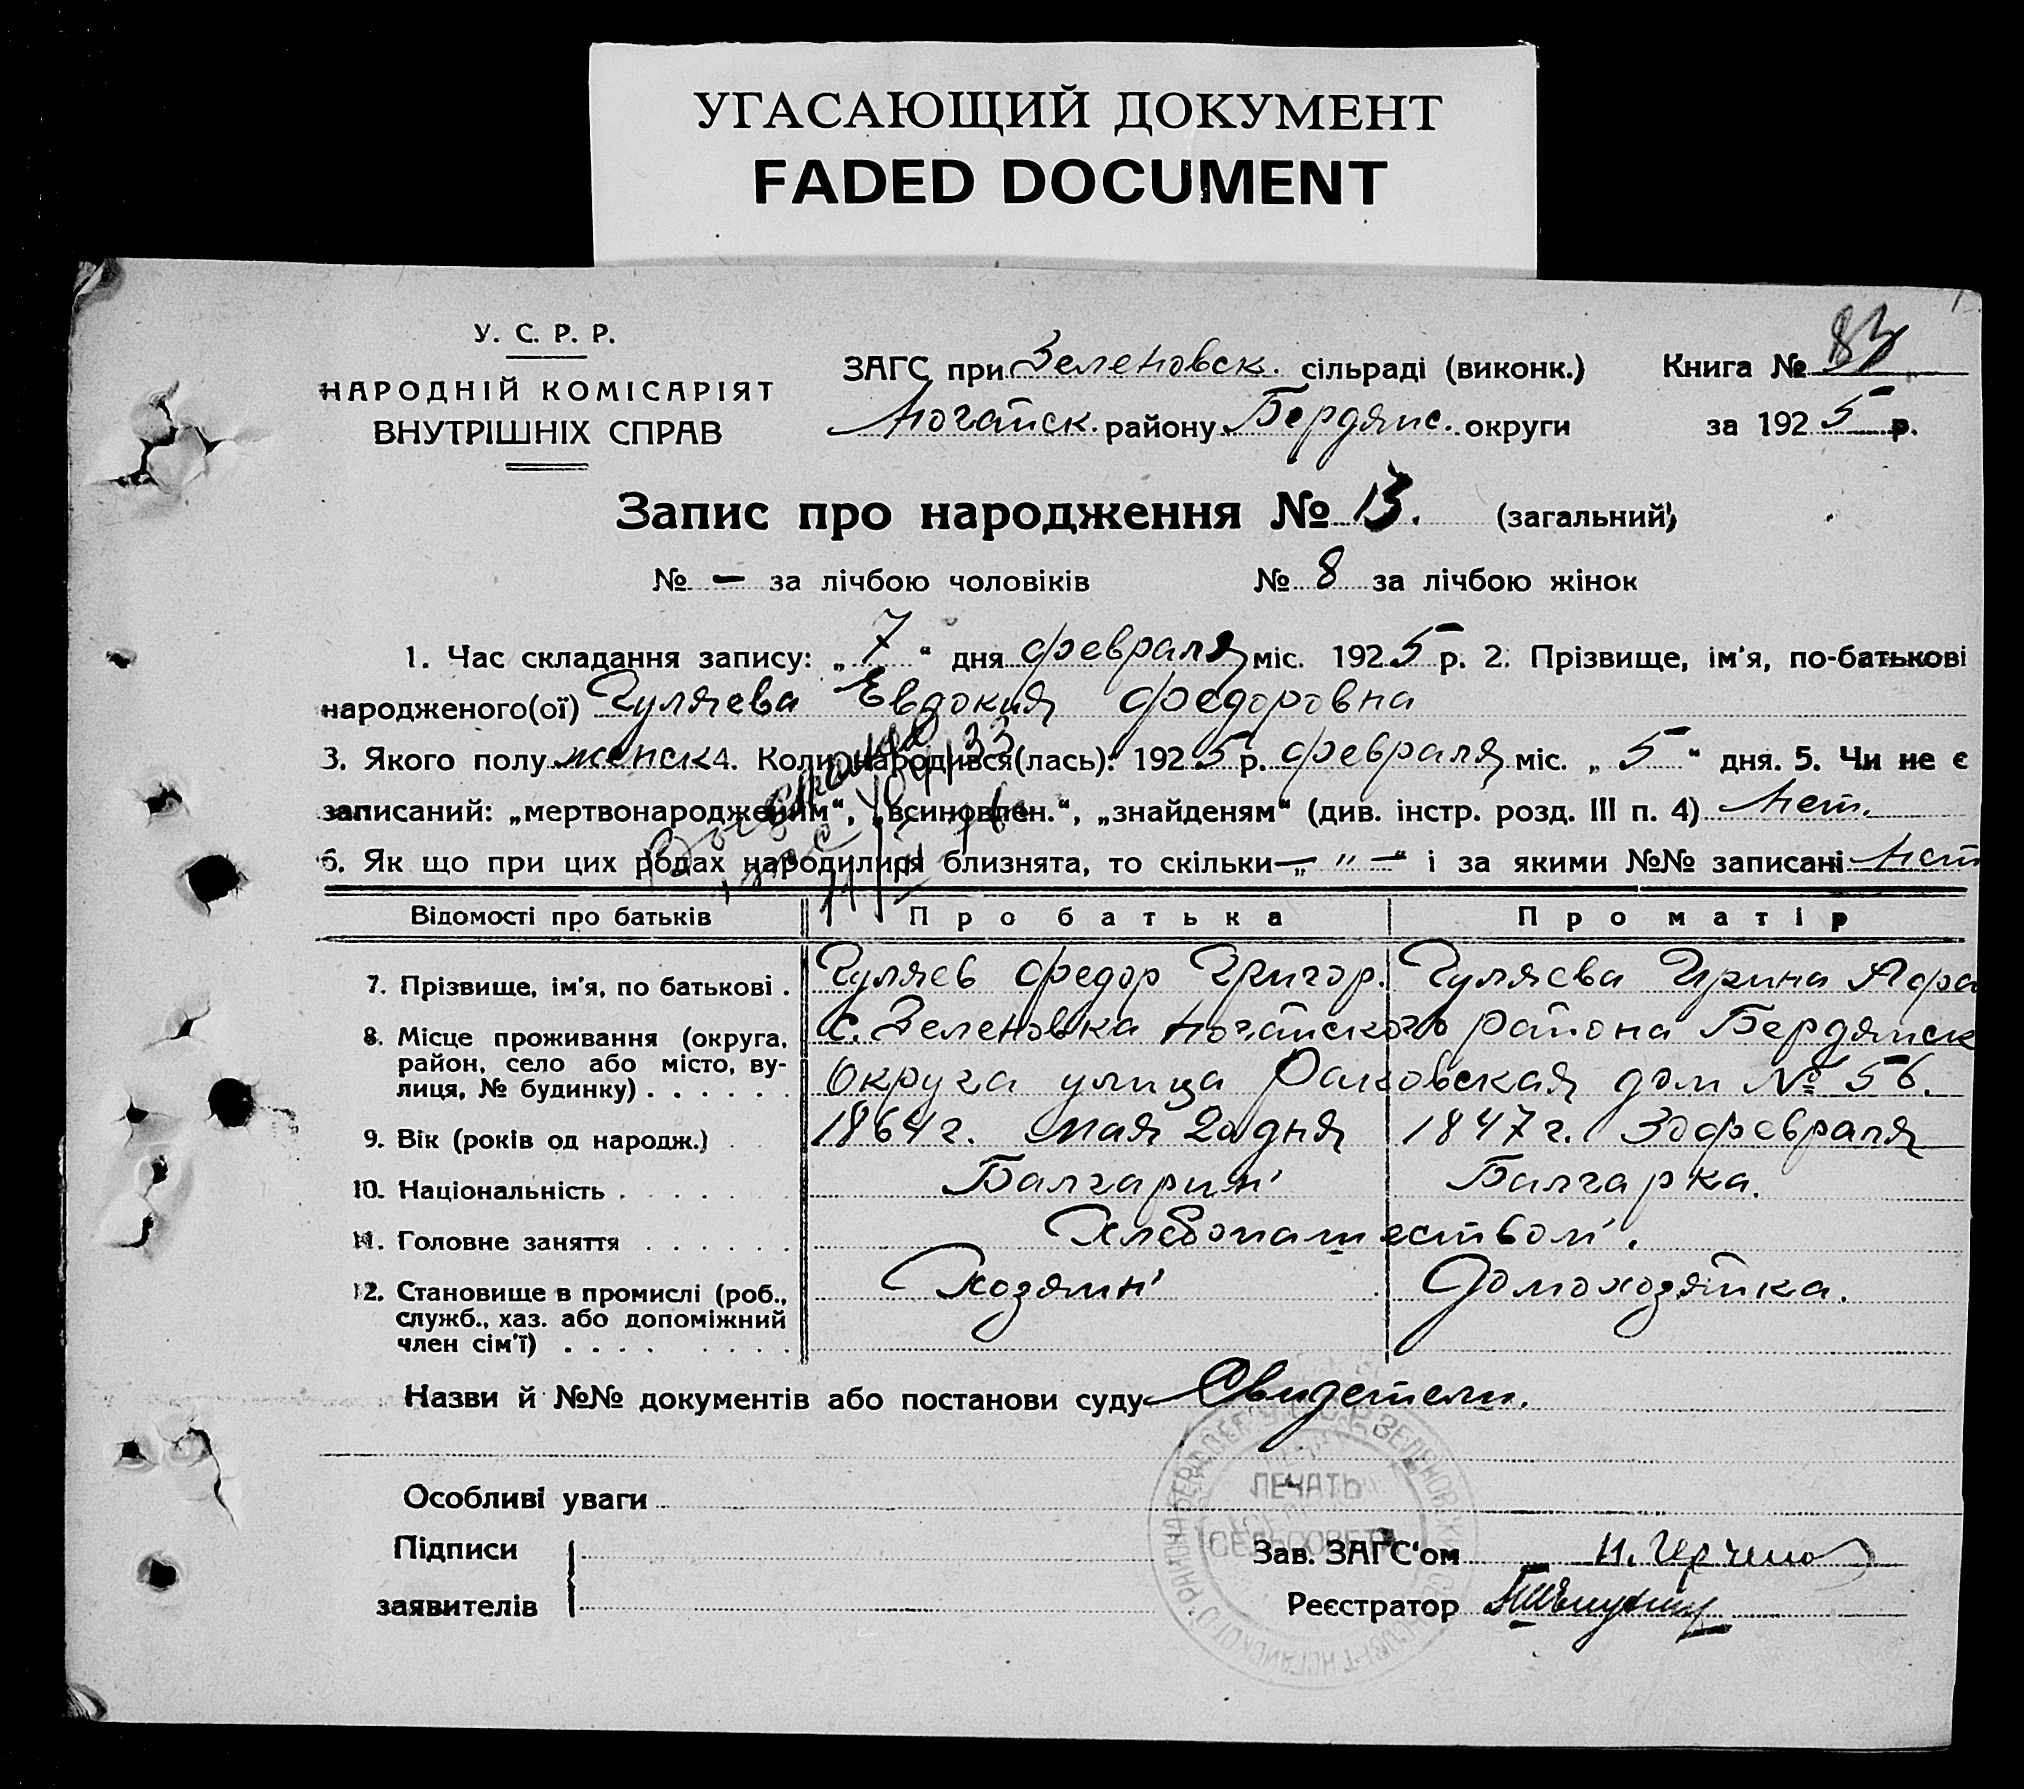 УГАСАЮЩИЙ ДОКУМЕНТ
FADED DOCUMENT
У. С. Р. Р.
НАРОДНІЙ КОМІСАРІЯТ
ВНУТРІШНІХ СПРАВ
ЗАГС при Зеленовск. сільраді (виконк.) Книга №
Ногайск. району Бердянс. округи за 1925 р.
Запис про народження № 13. (загальний)
№ — за лічбою чоловіків № 8 за лічбою жінок
1. Час складання запису: „7“ дня февраля міс. 1925 р. 2. Прізвище, ім'я, по-батькові
народженого(ої) Гуляева Евдокия Федоровна
3. Якого полу женск 4. Коли народився(лась): 1925 р. февраля міс. „5“ дня. 5. Чи не є
записаний: „мертвонародженим“, „всиновлен.“, „знайденям“ (див. інстр. розд. III п. 4) Нет.
6. Як що при цих родах народилися близнята, то скільки — „ — “ і за якими №№ записані Нет
Відомості про батьків Про батька Про матір
7. Прізвище, ім'я, по батькові . Гуляев Федор Григор. Гуляева Ирина Афа
8. Місце проживання (округа, с. Зеленовка Ногайского района Бердянск
район, село або місто, ву-
лиця, № будинку) . . . . . . Округа улица Раковская дом № 56.
9. Вік (років од народж.) 1864 г. мая 20 дня 1847 г. 30 февраля
10. Національність . . . . . Балгарин Балгарка.
11. Головне заняття . . . . . . Хлебопашеством.
12. Становище в промислі (роб., Хозяин Домохозяйка.
служб., хаз. або допоміжний
член сім'ї) . . . . . . . .
Назви й №№ документів або постанови суду Свидетели.
ПЕЧАТЬ
СЕЛЬСОВЕТА
Особливі уваги
Підписи
заявителів
Зав. ЗАГС'ом
Реєстратор